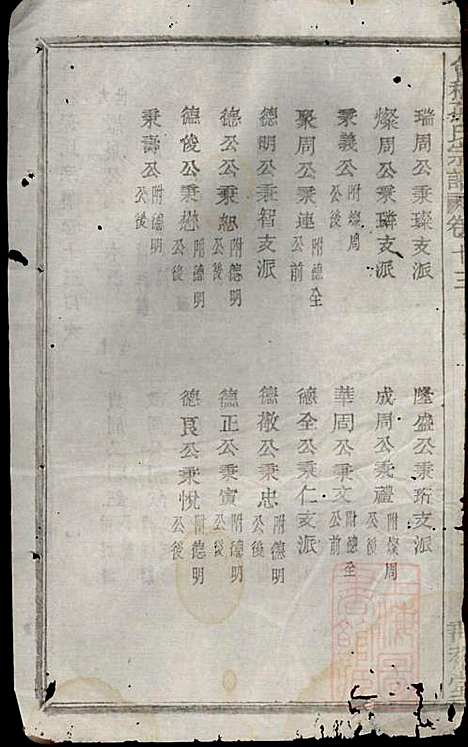 瑞周公秉璨支派
隆盛公秉珩支派
燦周公秉璘支派
成周公秉禮附燦周公後
秉義公附燦周公後
華周公秉文附德全公前
聚周公秉連附德全公前
德全公秉仁支派
德明公秉智支派
德敬公秉忠附德明公後
德公公秉恕附德明公後
德正公秉寅附德明公後
德俊公秉懋附德明公後
德良公秉悅附德明公後
秉壽公附德明公後
氏宗譜 卷十三